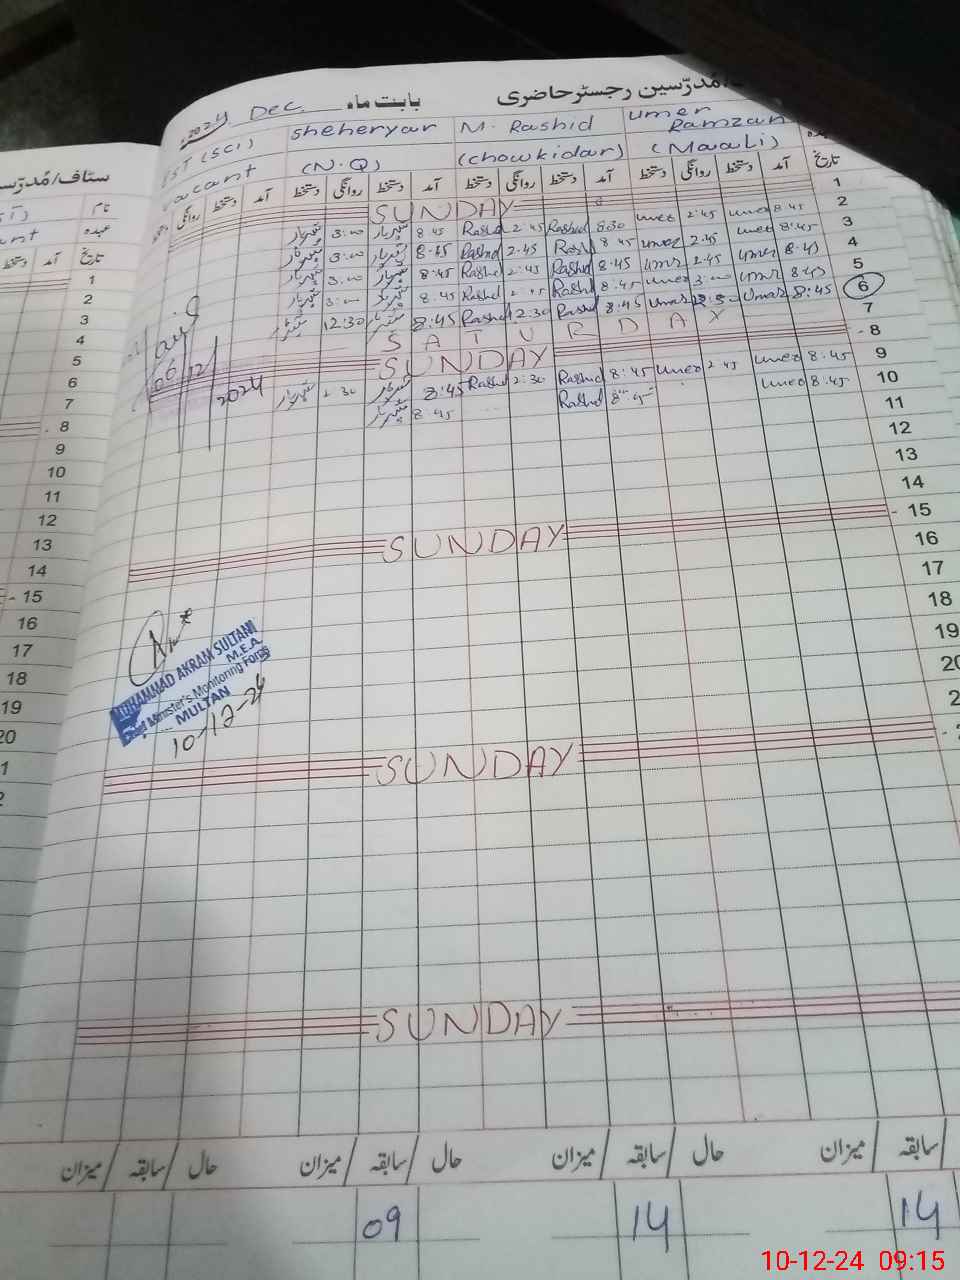 مُدرّسین رجسٹر حاضری بابت ماہ Dec. 2024
سٹاف/مُدرّس
Sheheryar M. Rashid Umer Ramzan
EST (SCI) (N.Q) (Chowkidar) (Maali)
vacant
نام
عہدہ
تاریخ آمد دستخط روانگی دستخط آمد دستخط روانگی دستخط آمد دستخط روانگی دستخط آمد دستخط روانگی دستخط
تاریخ آمد دستخط
1 SUNDAY
2 8:45 umer 2:45 umer 8:30 Rashid 2:45 Rashid 8:45 شہریار 3:00 شہریار
3 8:45 umer 2:45 umer 8:45 Rashid 2:45 Rashid 8:45 شہریار 3:00 شہریار
4 8:45 umer 2:45 umer 8:45 Rashid 2:45 Rashid 8:45 شہریار 3:00 شہریار
5 8:45 umer 3:00 umer 8:45 Rashid Rashid 8:45 شہریار 3:00 شہریار
6 8:45 Umar Umar 8:45 Rashid 12:30 Rashid 8:45 شہریار 12:30 شہریار
7 SATURDAY
8 SUNDAY
9 8:45 umer 2:45 umer 8:45 Rashid 2:30 Rashid 8:45 شہریار 2:30 شہریار
10 8:45 umer 8:45 Rashid 8:45 شہریار
06/12/2024
11
12
13
14
15 SUNDAY
16
17
18
19
20
SUNDAY
SUNDAY
1
2
3
4
5
6
7
8
9
10
11
12
13
14
15
16
17
18
19
20
MUHAMMAD AKRAM SULTANI
M.E.A.
Chief Minister's Monitoring Force
MULTAN
10-12-24
سابقہ میزان حال سابقہ میزان حال سابقہ میزان حال سابقہ میزان
14 14 09
10-12-24 09:15